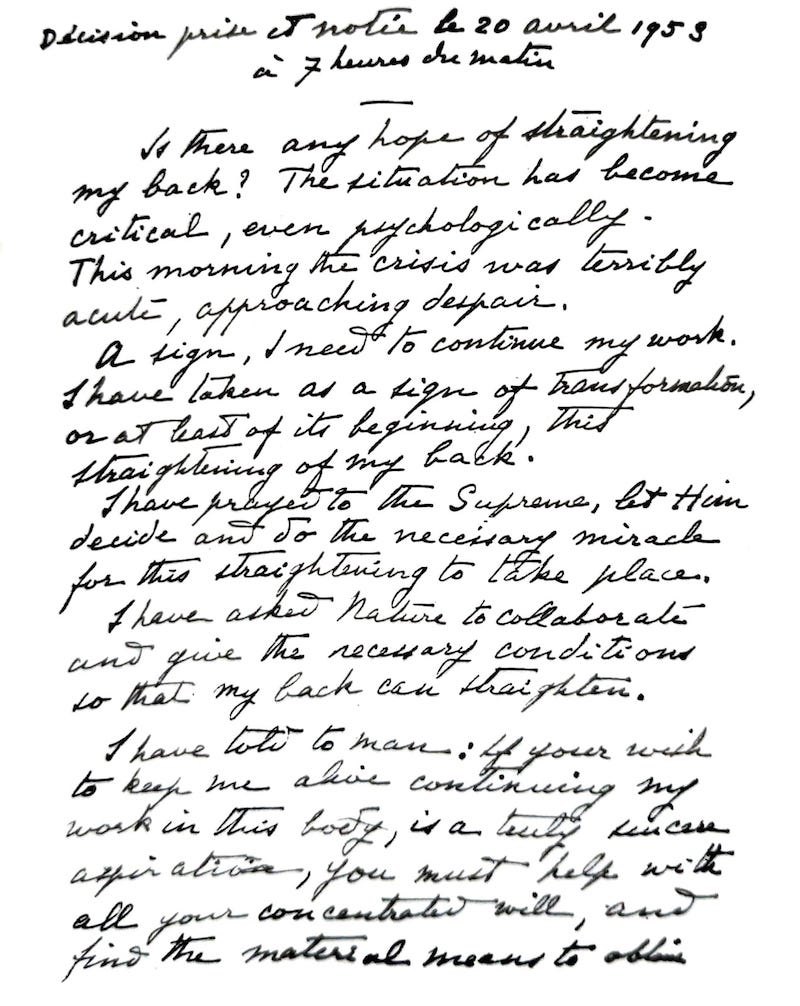 Décision prise et notée le 20 avril 1953
à 7 heures du matin
Is there any hope of straightening
my back? The situation has become
critical, even psychologically.
This morning the crisis was terribly
acute, approaching despair.
A sign, I need to continue my work.
I have taken as a sign of transformation,
or at least of its beginning, this
straightening of my back.
I have prayed to the Supreme, let Him
decide and do the necessary miracle
for this straightening to take place.
I have asked Nature to collaborate
and give the necessary conditions
so that my back can straighten.
I have told to man: If your wish
to keep me alive continuing my
work in this body, is a truly sincere
aspiration, you must help with
all your concentrated will, and
find the material means to obtain